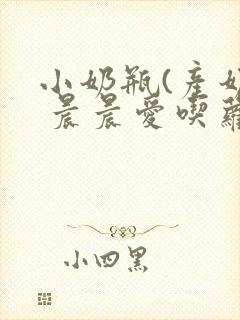 小奶瓶(產奶
晨晨愛喫蘿
小四黑